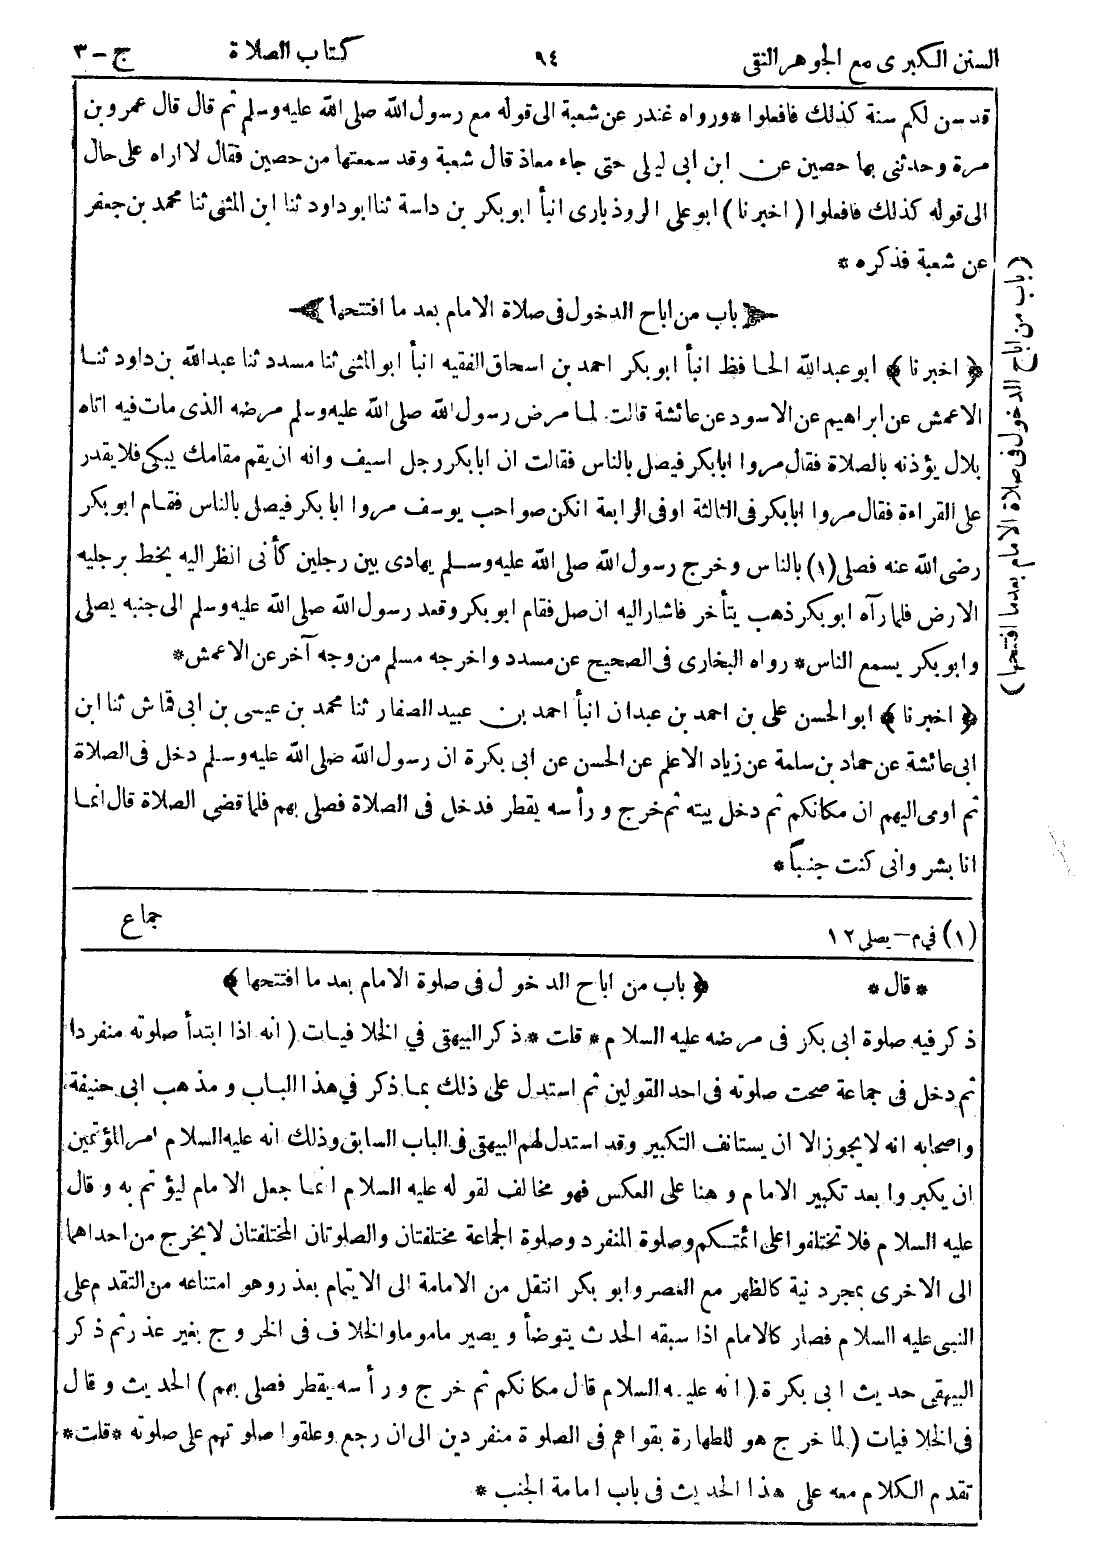 السنن الكبرى مع الجوهر النقى ٩٤ كتاب الصلاة ج-٣
قد سن لكم سنة كذلك فافعلوا * ورواه غندر عن شعبة الى قوله مع رسول الله صلى الله عليه وسلم ثم قال قال عمرو بن
مرة وحدثنى بها حصين عن ابن ابى ليلى حتى جاء معاذ قال شعبة وقد سمعتها من حصين فقال لا اراه على حال
الى قوله كذلك فافعلوا (اخبرنا) ابو على الروذبارى انبأ ابو بكر بن داسة ثنا ابو داود ثنا ابن المثنى ثنا محمد بن جعفر
عن شعبة فذكره *
باب من اباح الدخول فى صلاة الامام بعد ما افتتحها
﴿اخبرنا﴾ ابو عبد الله الحافظ انبأ ابو بكر احمد بن اسحاق الفقيه انبأ ابو المثنى ثنا مسدد ثنا عبد الله بن داود ثنا
الاعمش عن ابراهيم عن الاسود عن عائشة قالت لما مرض رسول الله صلى الله عليه وسلم مرضه الذى مات فيه اتاه
بلال يؤذنه بالصلاة فقال مروا ابا بكر فيصل بالناس فقالت ان ابا بكر رجل اسيف وانه ان يقم مقامك يبكى فلا يقدر
على القراءة فقال مروا ابا بكر فى الثالثة او فى الرابعة انكن صواحب يوسف مروا ابا بكر فيصل بالناس فقام ابو بكر
رضى الله عنه فصلى (١) بالناس وخرج رسول الله صلى الله عليه وسلم يهادى بين رجلين كأنى انظر اليه يخط برجليه
الارض فلما رآه ابو بكر ذهب يتأخر فاشار اليه ان صل فقام ابو بكر وقعد رسول الله صلى الله عليه وسلم الى جنبه يصلى
وابو بكر يسمع الناس * رواه البخارى فى الصحيح عن مسدد واخرجه مسلم من وجه آخر عن الاعمش *
﴿اخبرنا﴾ ابو الحسن على بن احمد بن عبدان انبأ احمد بن عبيد الصفار ثنا محمد بن عيسى بن ابى قماش ثنا ابن
ابى عائشة عن حماد بن سلمة عن زياد الاعلم عن الحسن عن ابى بكرة ان رسول الله صلى الله عليه وسلم دخل فى الصلاة
ثم اومى اليهم ان مكانكم ثم دخل بيته ثم خرج ورأسه يقطر فدخل فى الصلاة فصلى بهم فلما قضى الصلاة قال انما
انا بشر وانى كنت جنباً *
(باب من اباح الدخول فى صلاة الامام بعد ما افتتحها)
(١) في م - يصلى ١٢ جماع
* قال * ﴿باب من اباح الدخول فى صلوة الامام بعد ما افتتحها﴾
ذكر فيه صلوة ابى بكر فى مرضه عليه السلام * قلت * ذكر البيهقى في الخلافيات (انه اذا ابتدأ صلوته منفردا
ثم دخل فى جماعة صحت صلوته فى احد القولين ثم استدل على ذلك بما ذكر في هذا الباب و مذهب ابى حنيفة
واصحابه انه لا يجوز الا ان يستانف التكبير وقد استدل لهم البيهقى فى الباب السابق وذلك انه عليه السلام امر المؤتمين
ان يكبروا بعد تكبير الامام و هنا على العكس فهو مخالف لقوله عليه السلام انما جعل الامام ليؤتم به وقال
عليه السلام فلا تختلفوا على ائمتكم وصلوة المنفرد وصلوة الجماعة مختلفتان والصلوتان المختلفتان لا يخرج من احداهما
الى الاخرى بمجرد نية كالظهر مع العصر وابو بكر انتقل من الامامة الى الايتمام بعذر وهو امتناعه من التقدم على
النبى عليه السلام فصار كالامام اذا سبقه الحدث يتوضأ ويصير ماموما والخلاف فى الخروج بغير عذر ثم ذكر
البيهقى حديث ابى بكرة (انه عليه السلام قال مكانكم ثم خرج ورأسه يقطر فصلى بهم) الحديث وقال
فى الخلافيات (لما خرج هو للطهارة بقواهم فى الصلوة منفردين الى ان رجع وعلقوا صلوتهم على صلوته * قلت *
تقدم الكلام معه على هذا الحديث فى باب امامة الجنب *